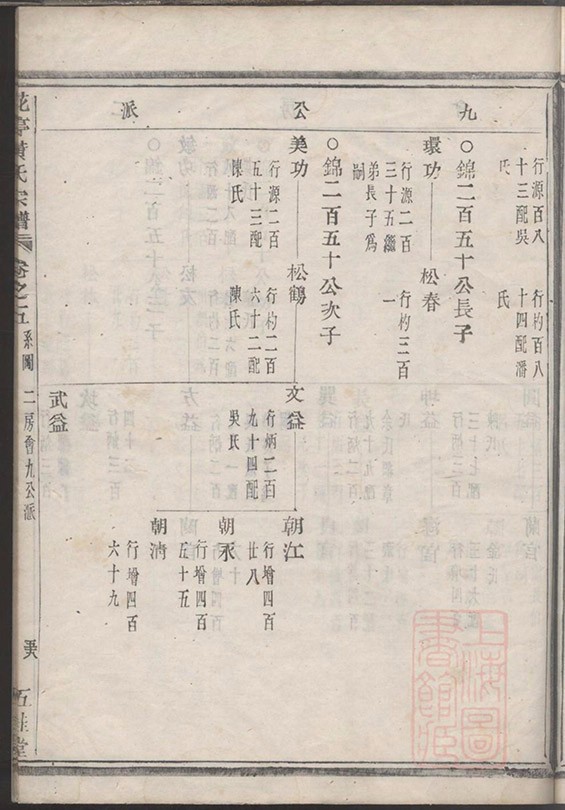 九公派
行源百八
十三配吳
氏
行杓百八
十四配潘
氏
○錦二百五十公長子
環功
行源二百
三十五繼
弟長子爲
嗣
松春
行杓三百
一
○錦二百五十公次子
美功
行源二百
五十三配
陳氏
松鶴
行杓二百
六十二配
陳氏
文益
行炳二百
九十四配
吳氏
朝江
行增四百
廿八
朝永
行增四百
五十五
朝清
行增四百
六十九
武益
黃氏宗譜
卷之五
系圖
二房會九公派
五桂堂
上海圖書館藏